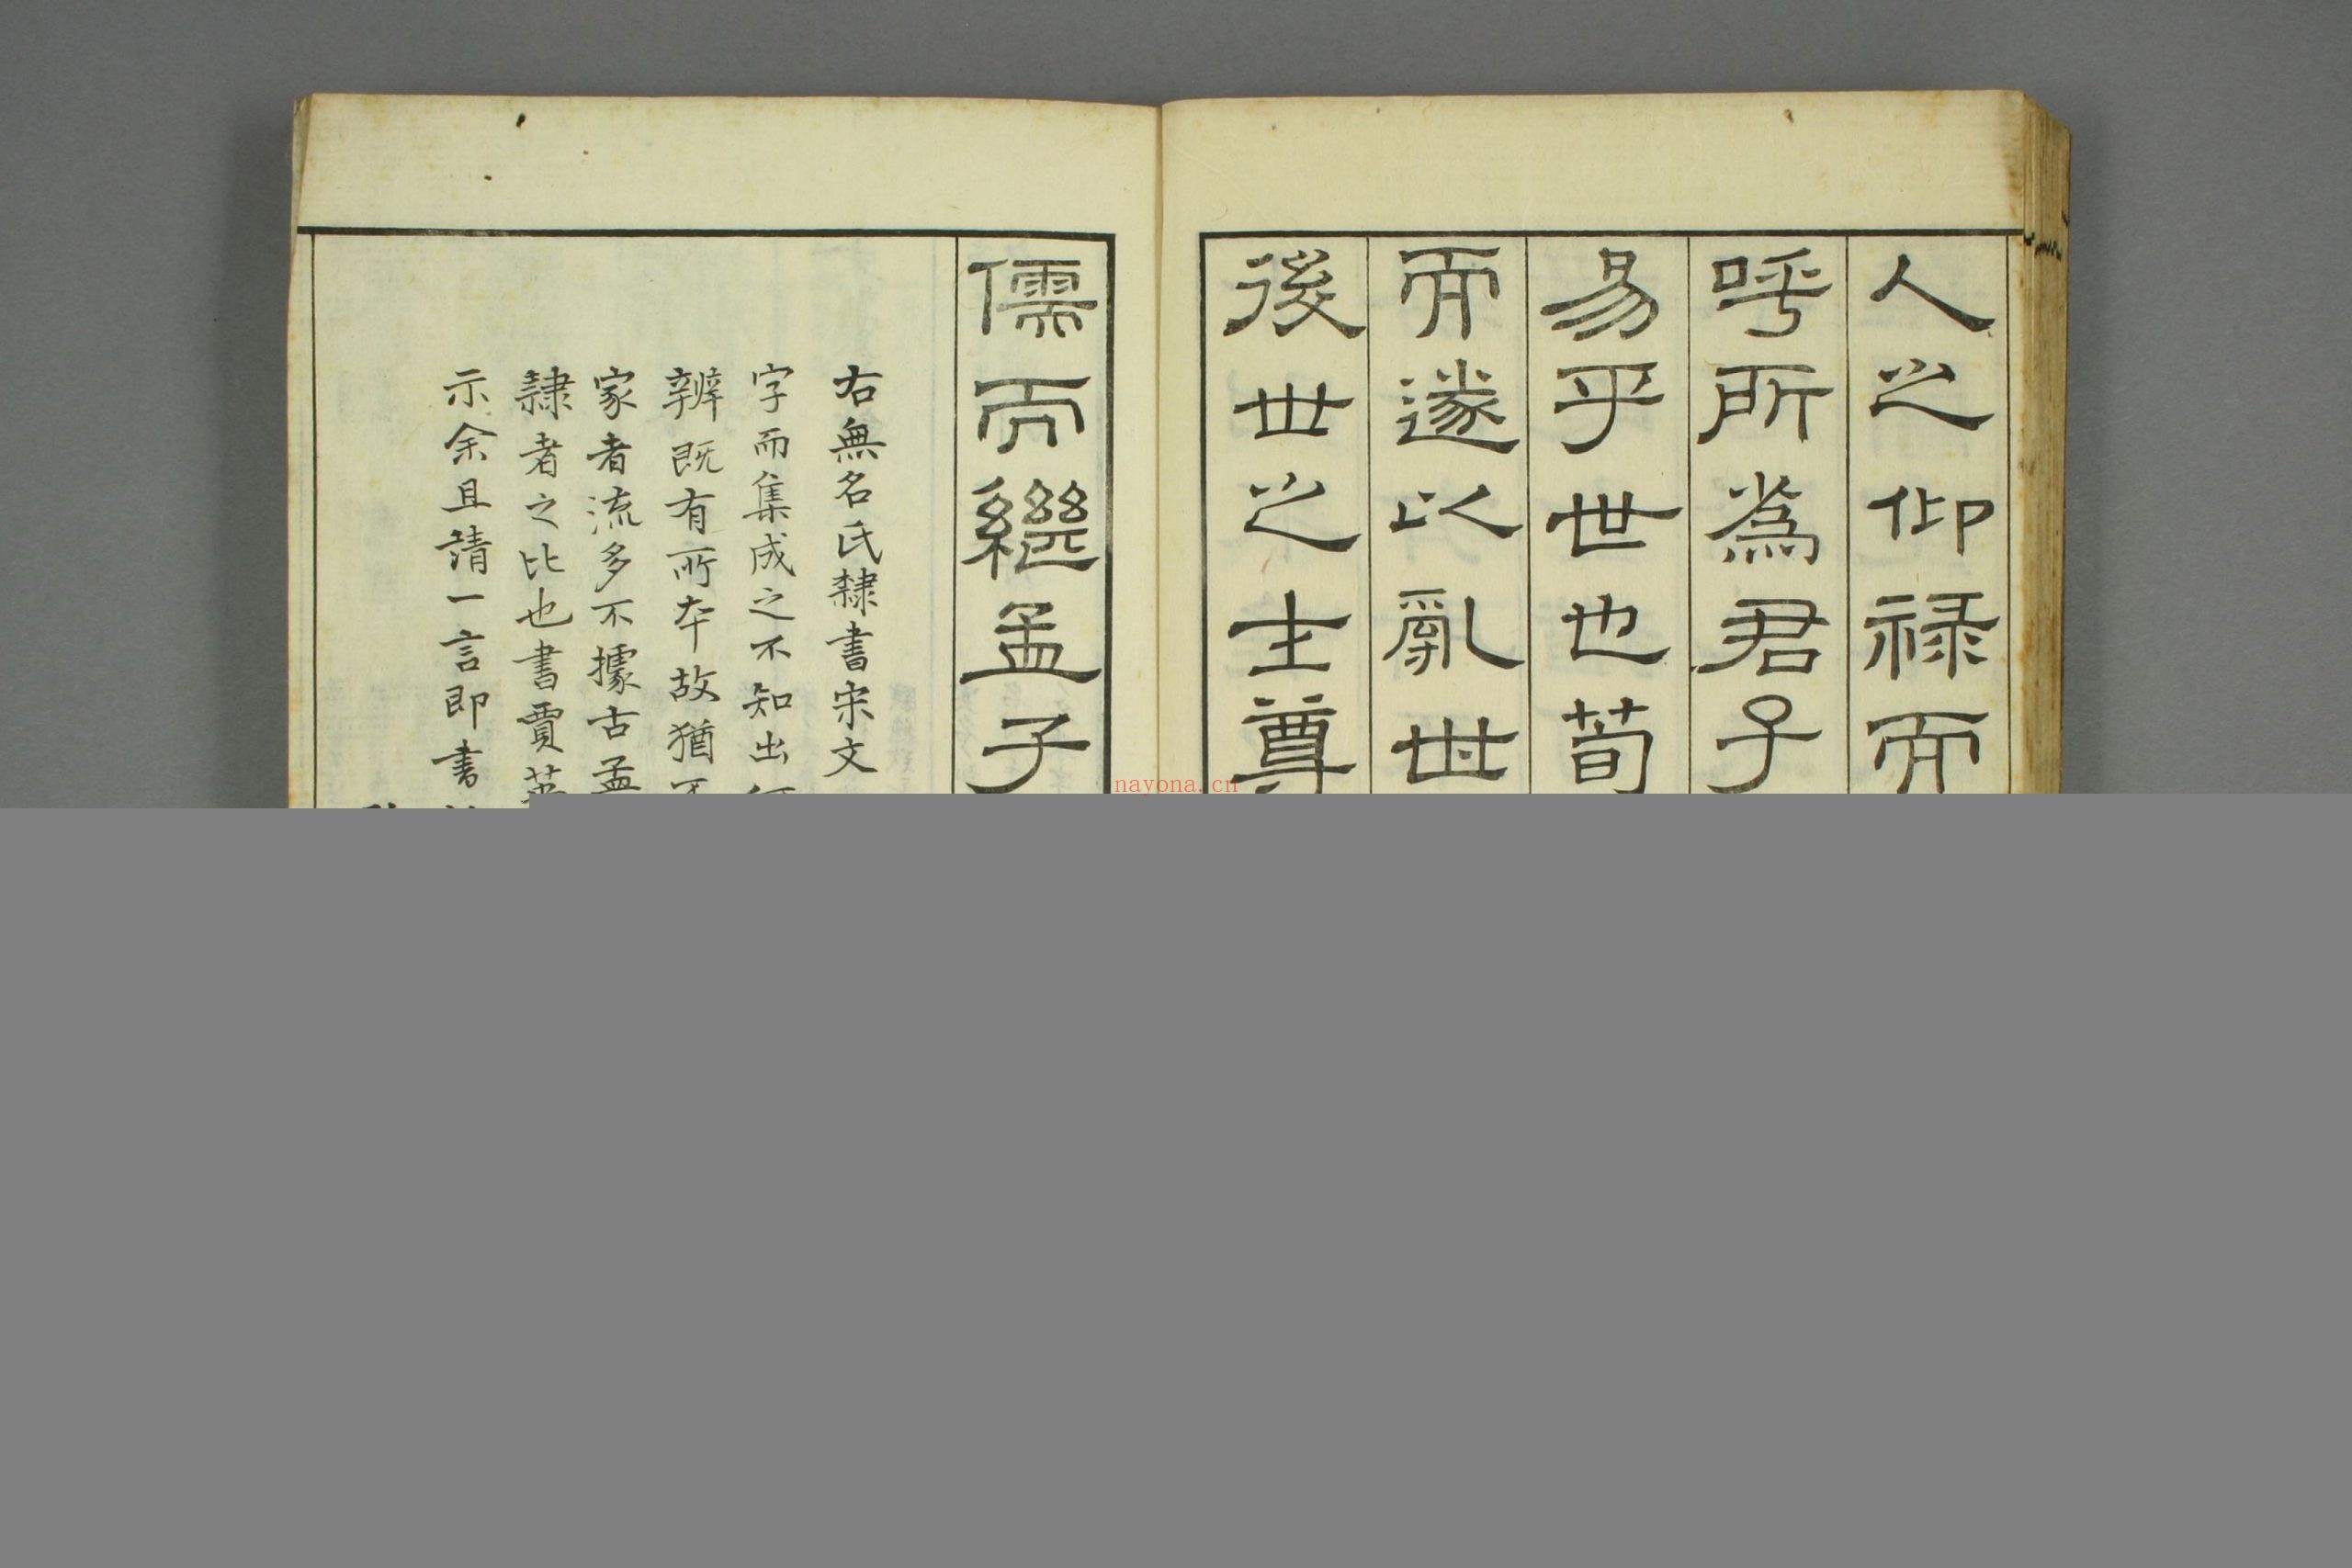 人之仰祿而
呼所為君子
易乎世也荀
而遂以亂世
後世之主尊
儒而繼孟子
右無名氏隸書宋文
字而集成之不知出
辨既有所本故猶不
家者流多不據古孟
隸者之比也書賈
示余且請一言即書
nayona.cn